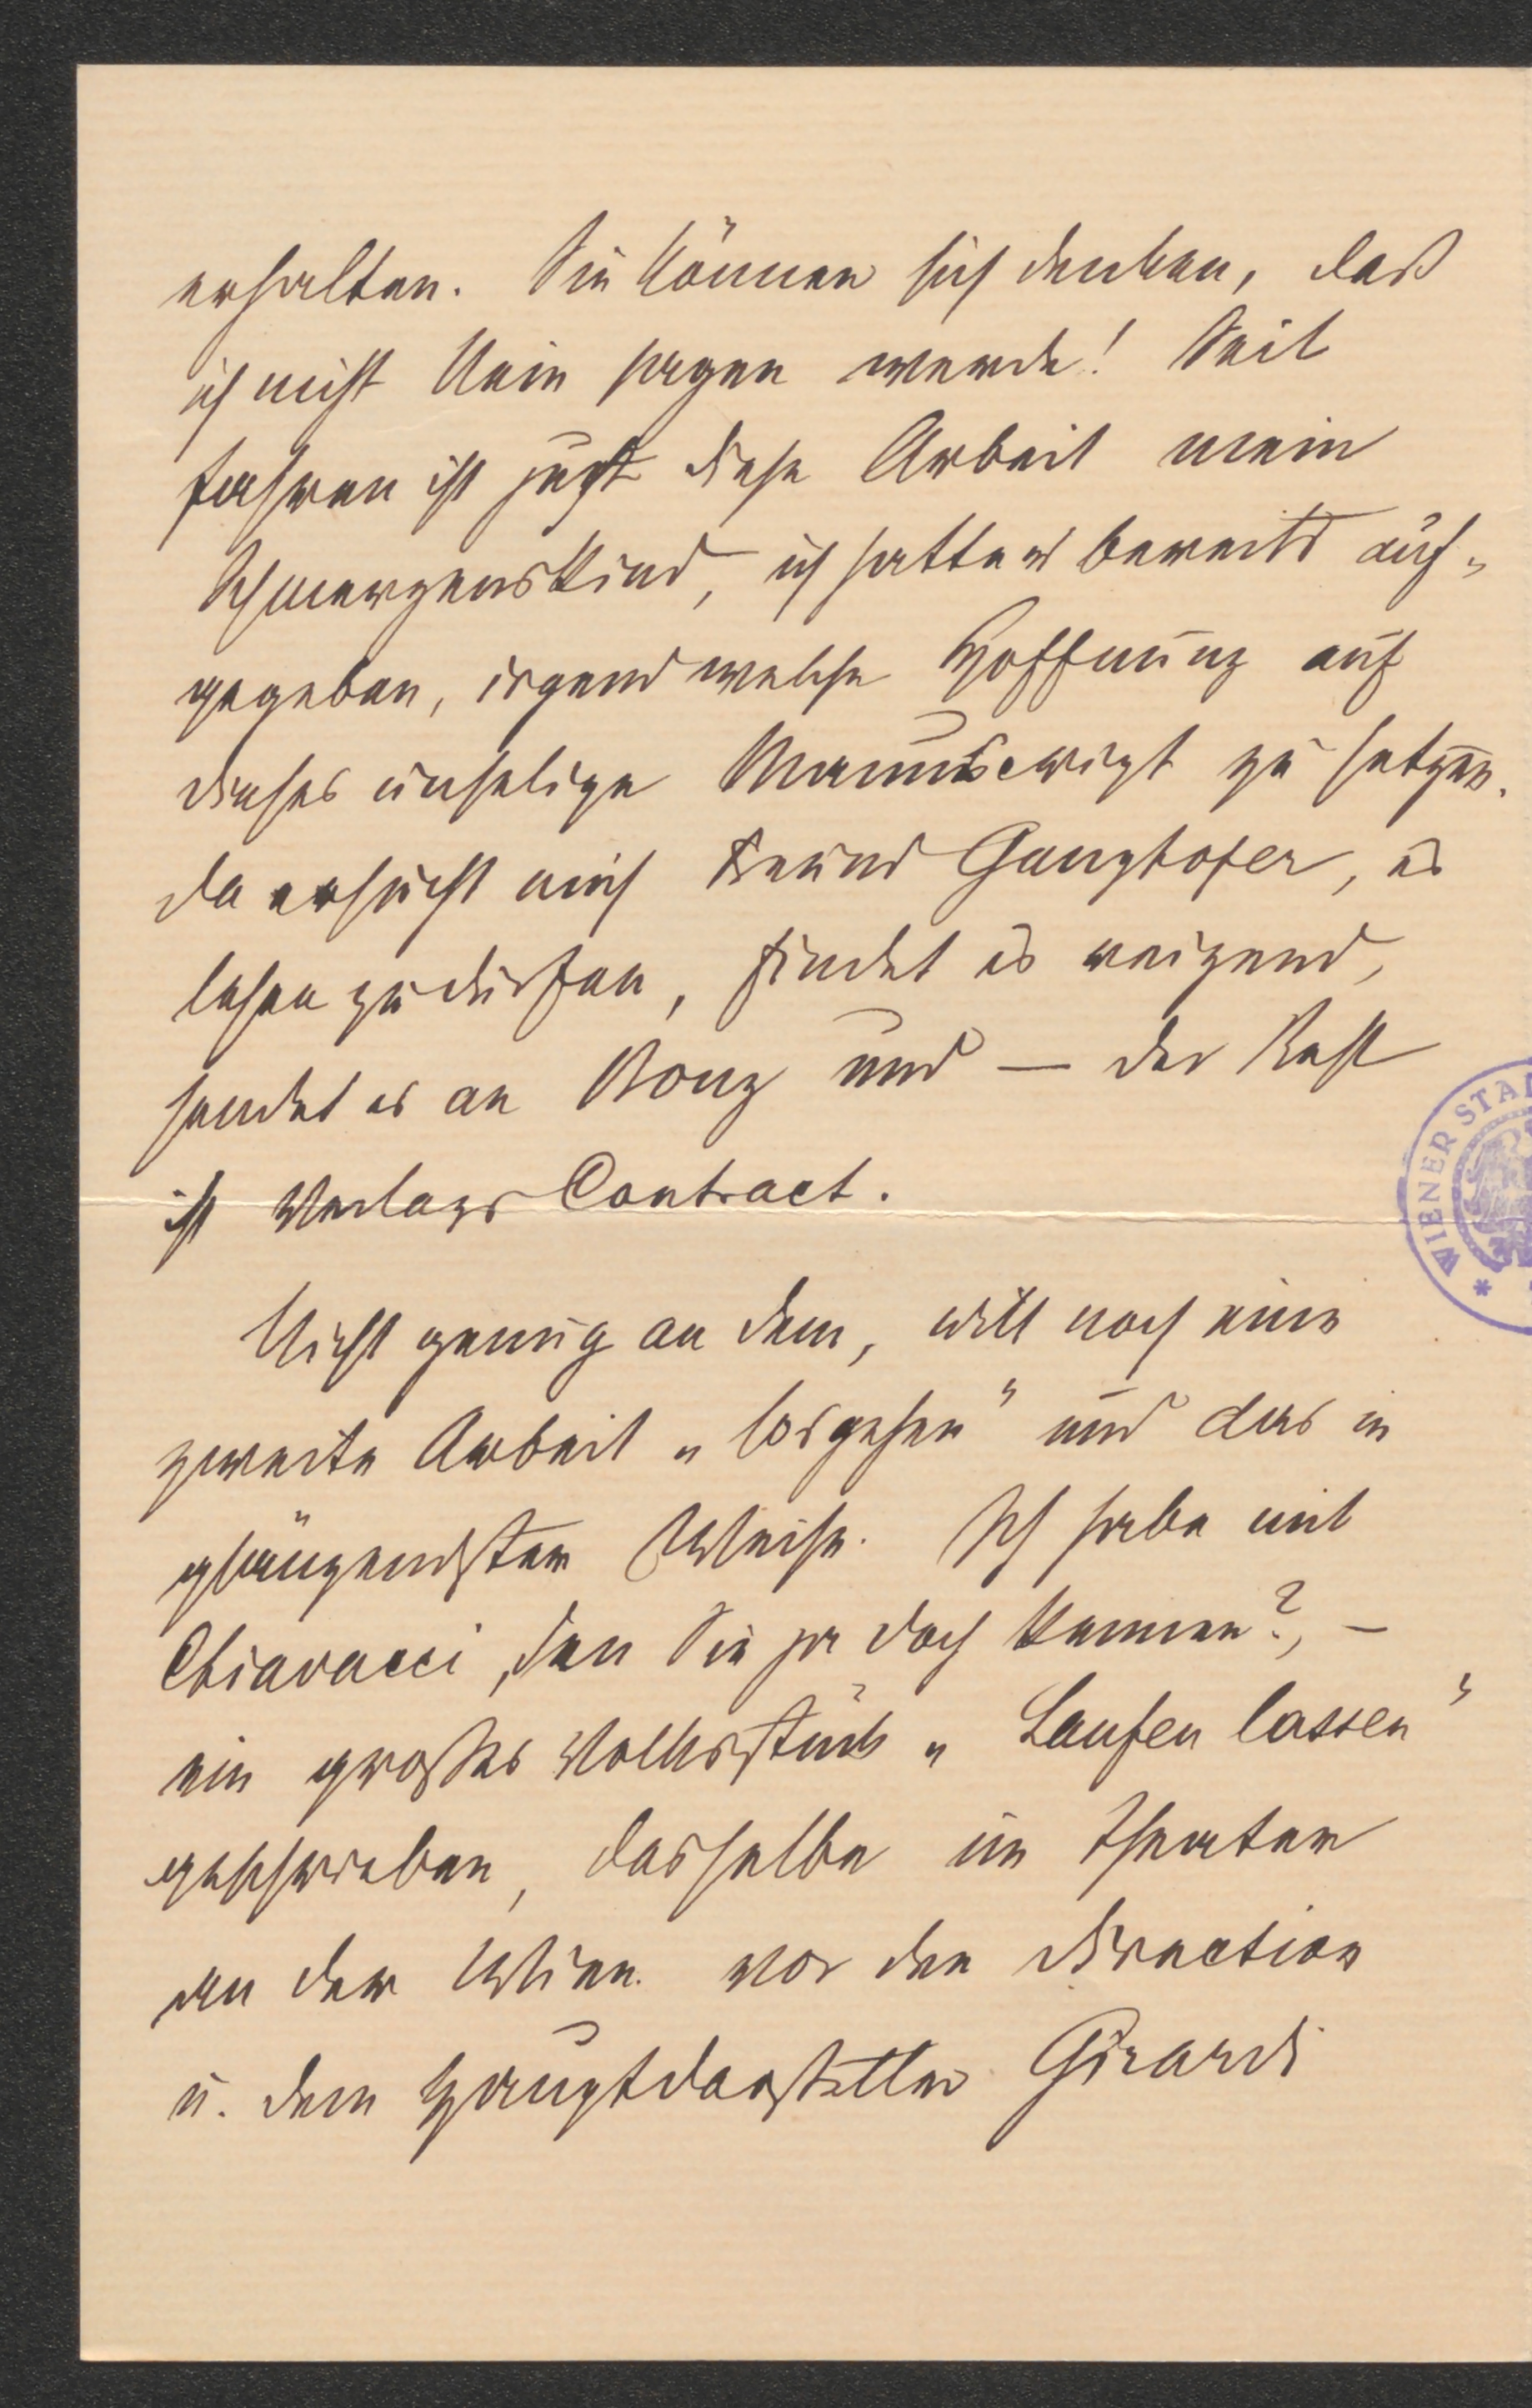 erhalten. Sie können sich denken, daß
ich nicht Nein sagen werde! Seit
Jahren ist just diese Arbeit mein
Schmerzenskind, ich hatte es bereits auf-
gegeben, irgend welche Hoffnung auf
dieses unselige Manuscript zu setzen.
Da ersucht mich Freund Ganghofer, es
lesen zu dürfen, findet es reizend,
sendet es an Bonz und — der Rest
ist Verlags Contract.
Nicht genug an dem, will noch eine
zweite Arbeit „losgehen“ und das in
glänzendster Weise. Ich habe mit
Chiavacci, den Sie ja doch kennen?, –
ein großes Volksstück „Laufen lassen“
geschrieben, dasselbe im Theater
an der Wien vor der Direction
u. dem Hauptdarsteller Girardi
WIENER STA